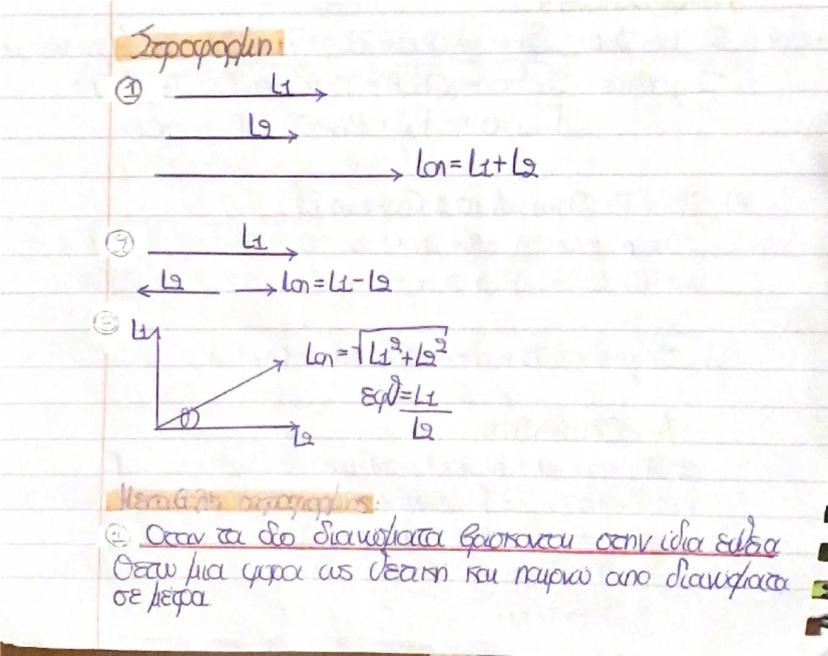 Στροφορμη:
① L1
L2
Lολ = L1 + L2
② L1
L2 Lολ = L1 - L2
③ L1
Lολ = √L1² + L2²
εφθ = L1
θ L2
L2
Μεταβολη στροφορμης
① Οταν τα δυο διανυσματα βρισκονται στην ιδια ευθεια
Θετω μια φορα ως θετικη και παιρνω απο διανυσματα
σε μετρα